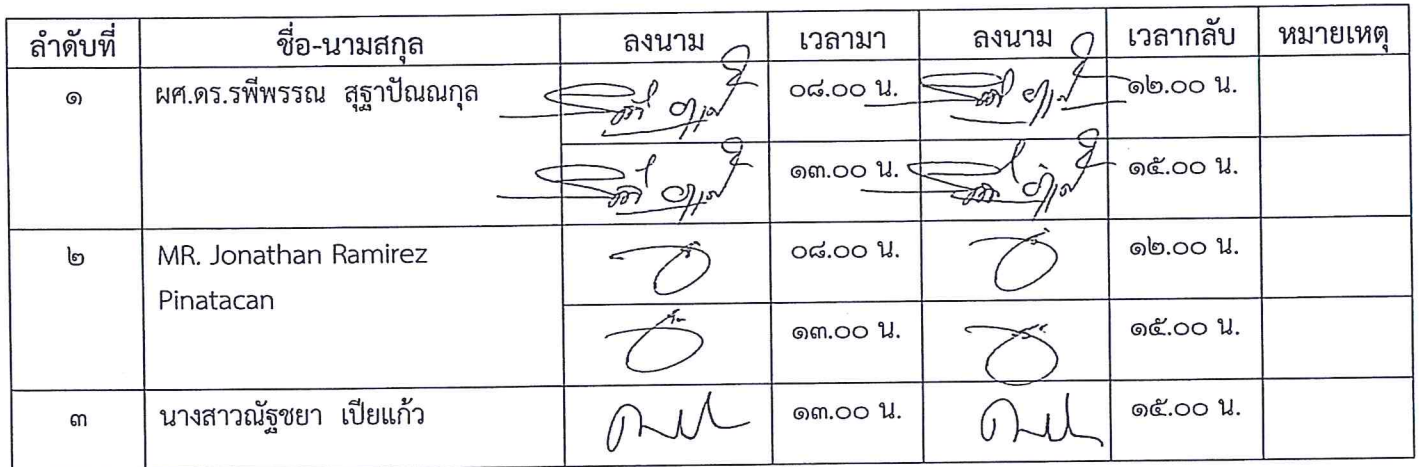 ลำดับที่ ชื่อ-นามสกุล ลงนาม เวลามา ลงนาม เวลากลับ หมายเหตุ
๑ ผศ.ดร.รพีพรรณ สุฐาปัณณกุล ๐๘.๐๐ น. ๑๒.๐๐ น.
๑๓.๐๐ น. ๑๕.๐๐ น.
๒ MR. Jonathan Ramirez ๐๘.๐๐ น. ๑๒.๐๐ น.
Pinatacan
๑๓.๐๐ น. ๑๕.๐๐ น.
๓ นางสาวณัฐชยา เปียแก้ว ๑๓.๐๐ น. ๑๕.๐๐ น.